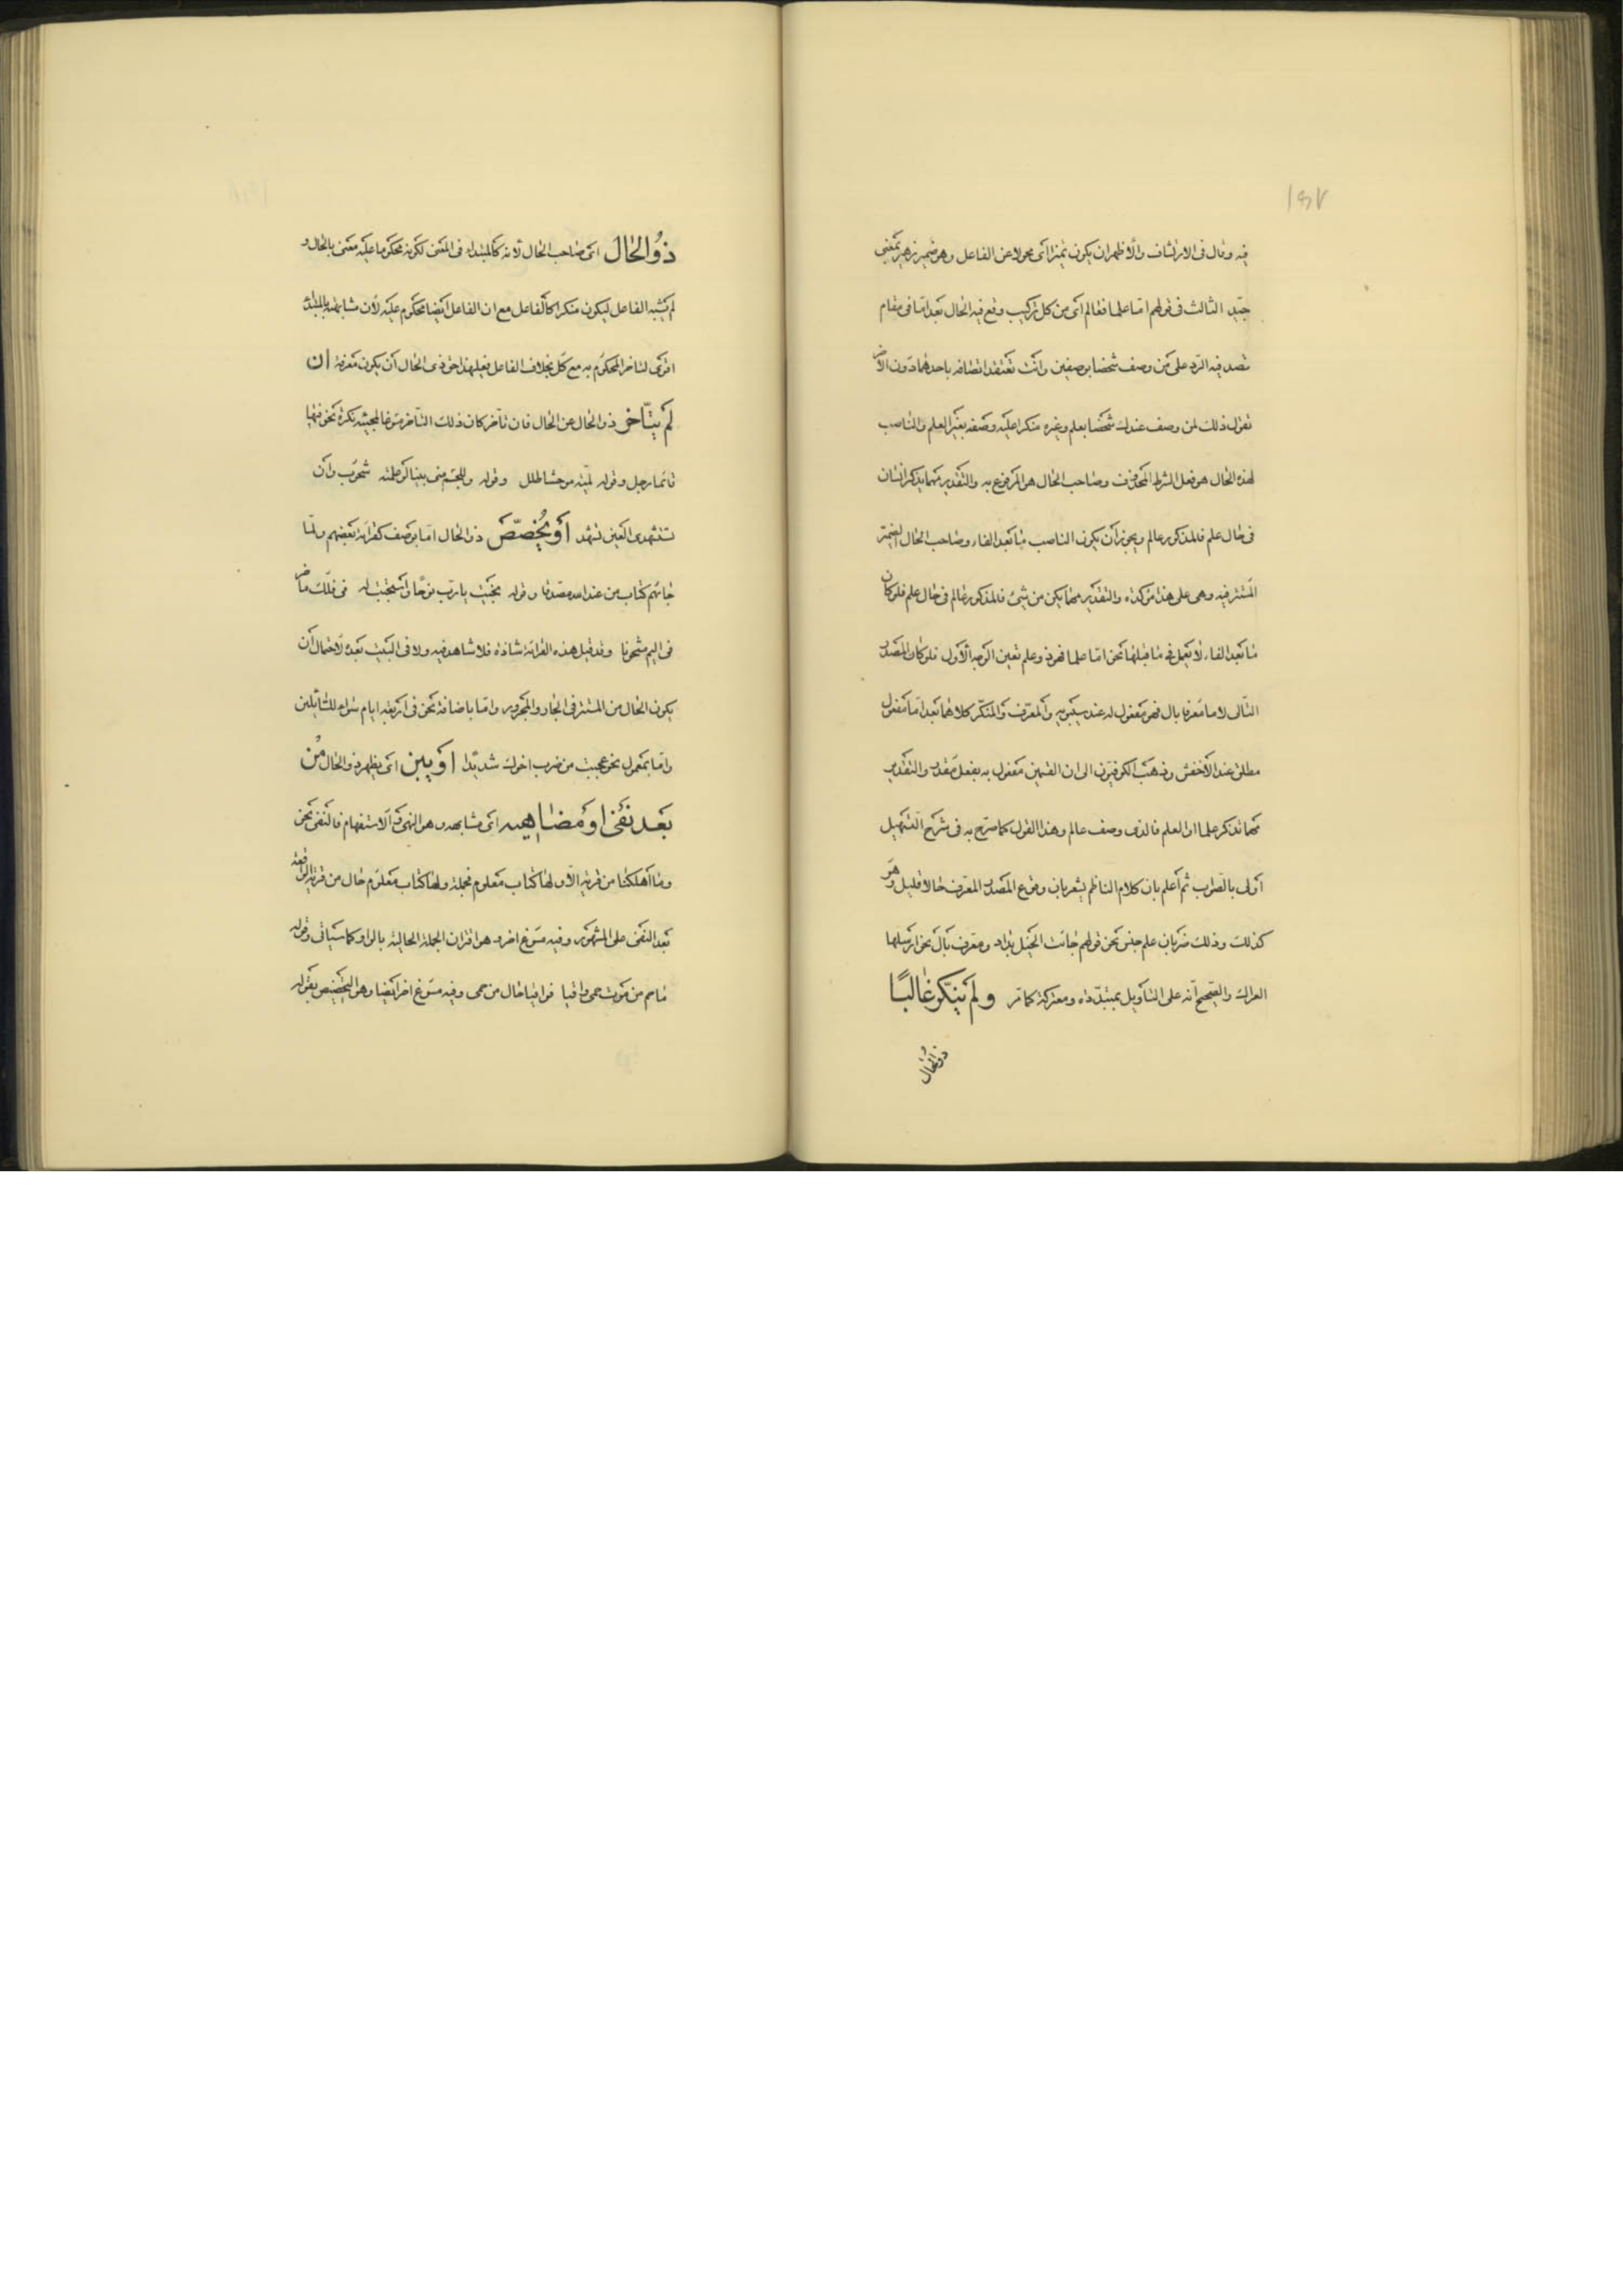 ١٥٧
فيه وقال في الارتشاف والأظهر ان يكون تميزا أي محولا عن الفاعل وهو ضمير زهير بمعنى
جيّد الثالث في قولهم امّا علما فعالم أي من كل تركيب وقع فيه الحال بعد امّا في مقام
قصد فيه الرّد على من وصف شخصا بوصفين وانت تعتقد اتصافه باحدهما دون الآخر
تقول ذلك لمن وصف عندك شخصا بعلم وغيره منكرا عليه وصفه بغير العلم والناصب
لهذه الحال هو فعل الشرط المحذوف وصاحب الحال هو المرفوع به والتقدير مهما يذكر انسان
في حال علم فالمذكور عالم ويجوز أن يكون الناصب ما بعد الفاء وصاحب الحال الضمير
المستتر فيه وهي على هذا مؤكدة والتقدير مهما يكن من شئ فالمذكور عالم في حال علم فلو كان
ما بعد الفاء لا يعمل في ما قبلها نحو امّا علما فهو ذو علم تعين الوجه الأول فلو كان المصدر
التالي لاما معرفا بال فهو مفعول له عند سيبويه والمعرف والمنكّر كلاهما بعد امّا مفعول
مطلق عند الأخفش وذهب الكوفيون الى ان القسمين مفعول به بفعل مقدر والتقدير
مهما تذكر علما او العلم فالذي وصف عالم وهذا القول كما صرّح به في شرح التسهيل
أولى بالصّواب ثم أعلم بان كلام الناظم يشعر بان وقوع المصدر المعرف حالا قليل وهو
كذلك وذلك ضربان علم جنس نحو قولهم جائت الخيل بداد ومعرف بأل نحو ارسلها
العراك والصّحيح أنّه على التأويل بمتبدّدة ومعتركة كما مّر ولم ينكّر غالبًا
ذو الحال
ذو الحال أي صاحب الحال لأنه كالمبتداء في المعنى لكونه محكوما عليه معنى بالحال و
لم يشبه الفاعل ليكون منكرا كالفاعل مع ان الفاعل ايضا محكوم عليه لأن مشابهته بالمبتدا
اقوى لتاخر المحكوم به مع كل بخلاف الفاعل فعلى هذا حق ذي الحال أن يكون معرفة ان
لم يتأخر ذو الحال عن الحال فان تأخر كان ذلك التأخر مسوغا لمجيئه نكرة نحو فيها
قائما رجل وقوله لميّة موحشا طلل وقوله وبالجسم مني بينا لو علمته شحوب وان
تستشهدي العين تشهد أو يُخصّص ذو الحال امّا بوصف كقراءة بعضهم ولمّا
جائهم كتاب من عند الله مصدّقا وقوله نجيّت يا رب نوحًا واستجبت له في فلك ماخر
في اليم مشحونا وقد قيل هذه القراءة شاذة فلا شاهد فيه ولا في البيت بعده لاحتمال أن
يكون الحال من المستتر في الجار والمجرور وامّا باضافة نحو في اربعة ايام سواء للسّائلين
وامّا بمعمول نحو عجبت من ضرب اخوك شديدا أو يبن أي يظهر ذو الحال من
بعد نفي أو مضاهيه أي مشابهه وهو النهي والاستفهام فالنفي نحو
وما أهلكنا من قرية الّا ولها كتاب معلوم فجملة ولها كتاب معلوم حال من قرية الواقعة
بعد النفي على المشهور وفيه مسوغ اخر وهو اقتران الجملة الحالية بالواو كما سيأتي وقوله
ما حم من موت حمى واقيا فواقيا حال من حمى وفيه مسوغ اخر ايضا وهو التخصيص بقوله